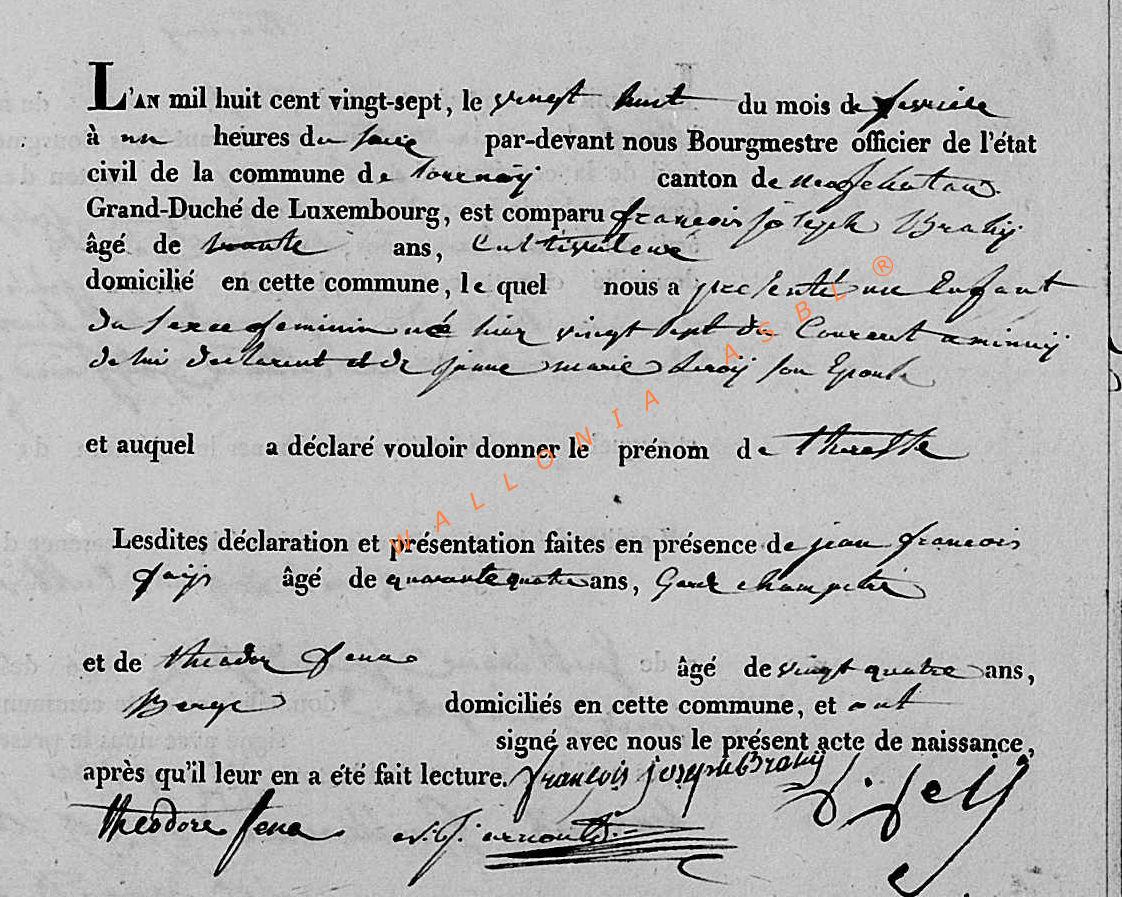 L'AN mil huit cent vingt-sept, le vingt huit du mois de fevrier
à un heures du soir par-devant nous Bourgmestre officier de l'état
civil de la commune de tournay canton de neufchateau
Grand-Duché de Luxembourg, est comparu françois joseph Brahy
âgé de trente ans, Cultivateur
domicilié en cette commune, le quel nous a presenté un Enfant
du sexe feminin né hier vingt sept du Courent a minuy
de lui declarent et de jenne marie Leroy son Epouse
et auquel a déclaré vouloir donner le prénom de theresse
Lesdites déclaration et présentation faites en présence de jean françois
âgé de quarante quatre ans, Garde champetre
et de theodor âgé de vingt quatre ans,
Berge domiciliés en cette commune, et ont
signé avec nous le présent acte de naissance,
après qu'il leur en a été fait lecture. françois joseph Brahy
theodore fena
WALLONIA ASBL ®